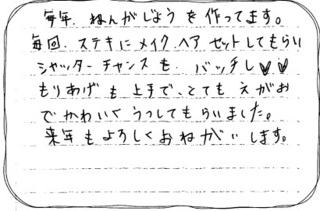 毎年、ねんがじょうを作ってます。
毎回、ステキにメイク、ヘア、セットしてもらい
シャッターチャンスも、バッチし♡♡
もりあげも上手で、とてもえがお
でかわいくうつしてもらいました。
来年もよろしくおねがいします。